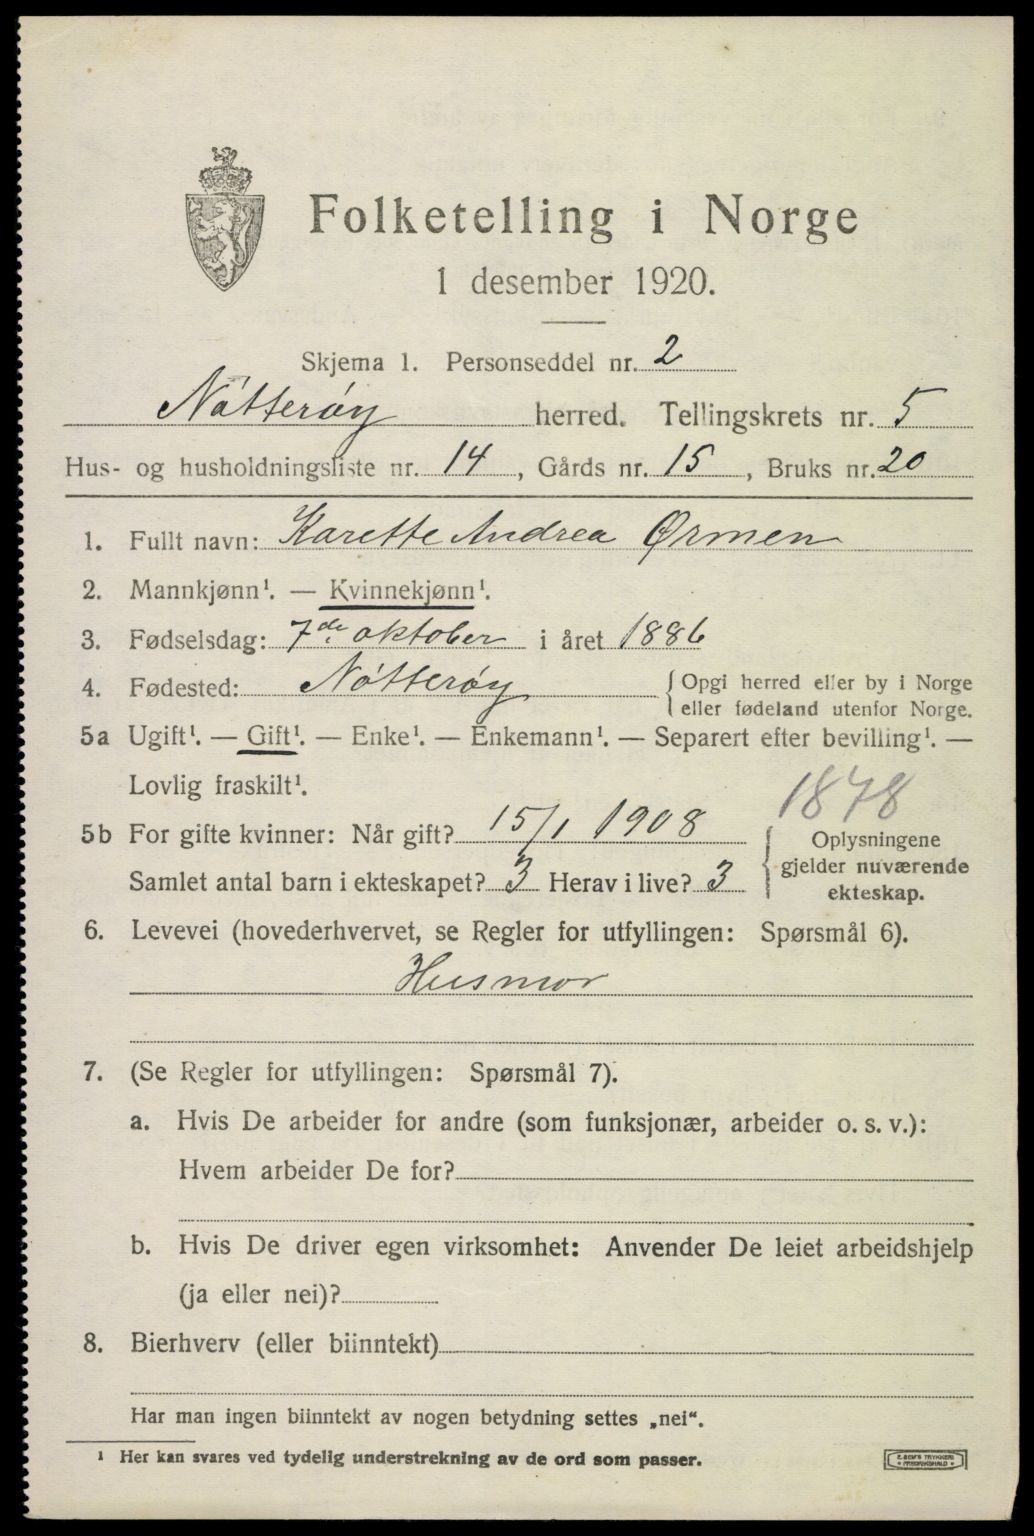 Folketelling i Norge
1 desember 1920.
Skjema 1. Personseddel nr. 2
Nøtterøy herred. Tellingskrets nr. 5
Hus- og husholdningsliste nr. 14, Gårds nr. 15, Bruks nr. 20
1. Fullt navn: Karette Andrea Ørmen
2. Mannkjønn¹. — Kvinnekjønn¹.
3. Fødselsdag: 7de oktober i året 1886
4. Fødested: Nøtterøy {Opgi herred eller by i Norge
eller fødeland utenfor Norge.
5a Ugift¹. — Gift¹. — Enke¹. — Enkemann¹. — Separert efter bevilling¹. —
Lovlig fraskilt¹.
1878
5b For gifte kvinner: Når gift? 15/1 1908
Samlet antal barn i ekteskapet? 3 Herav i live? 3
{Oplysningene
gjelder nuværende
ekteskap.
6. Levevei (hovederhvervet, se Regler for utfyllingen: Spørsmål 6).
Husmor
7. (Se Regler for utfyllingen: Spørsmål 7).
a. Hvis De arbeider for andre (som funksjonær, arbeider o. s. v.):
Hvem arbeider De for?
b. Hvis De driver egen virksomhet: Anvender De leiet arbeidshjelp
(ja eller nei)?
8. Bierhverv (eller biinntekt)
Har man ingen biinntekt av nogen betydning settes „nei“.
¹ Her kan svares ved tydelig understrekning av de ord som passer.